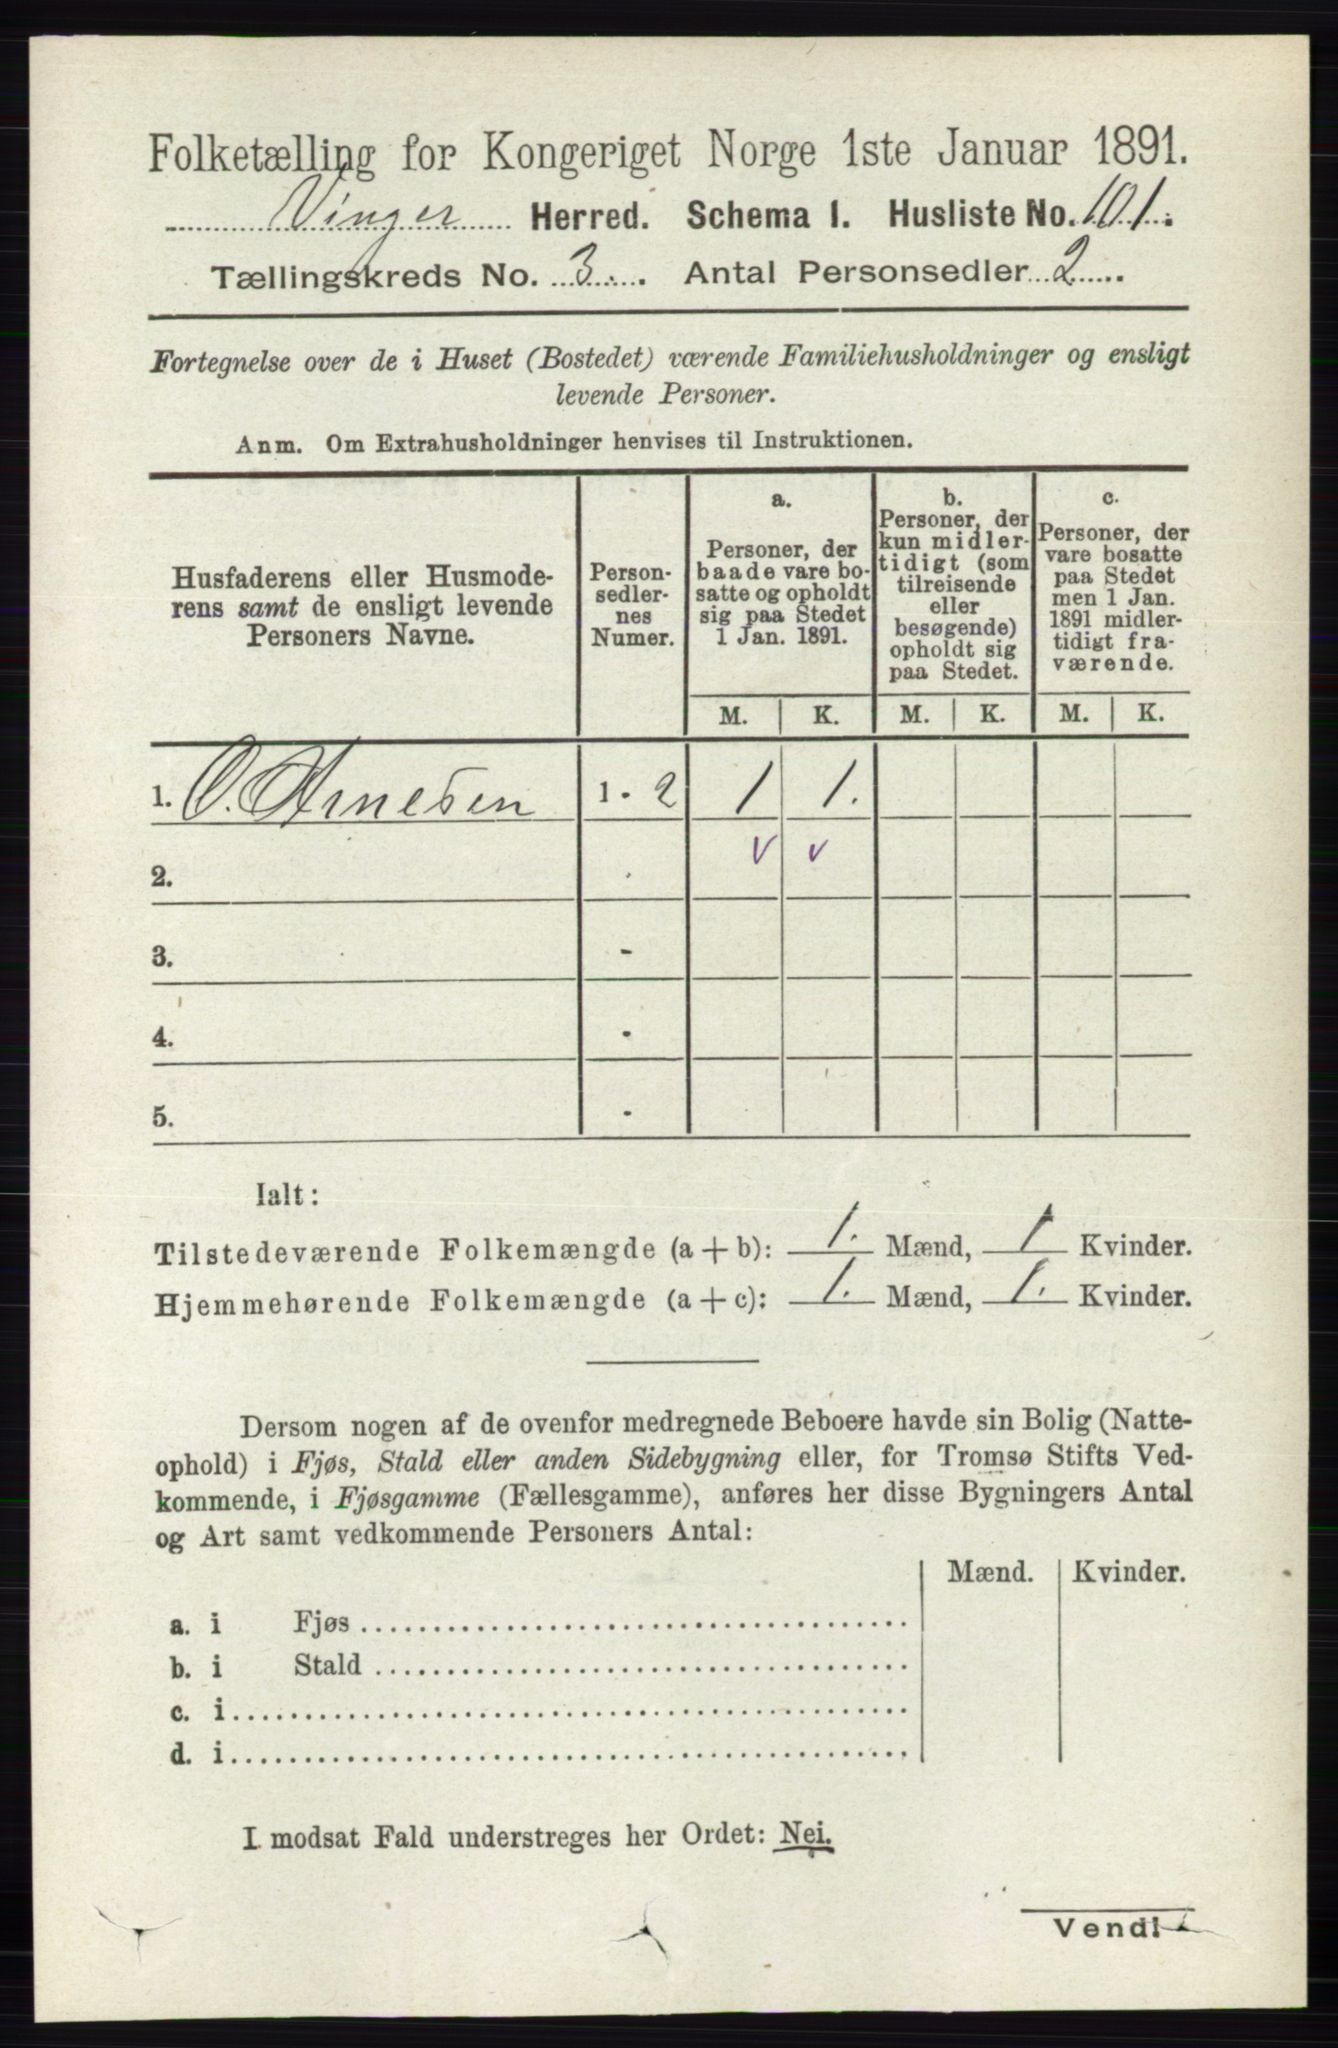 Folketælling for Kongeriget Norge 1ste Januar 1891.
Vinger Herred. Schema 1. Husliste No. 101.
Tællingskreds No. 3. Antal Personsedler 2
Fortegnelse over de i Huset (Bostedet) værende Familiehusholdninger og ensligt
levende Personer.
Anm. Om Extrahusholdninger henvises til Instruktionen.
Husfaderens eller Husmode-
rens samt de ensligt levende
Personers Navne.
Person-
sedler-
nes
Numer.
a.
Personer, der
baade vare bo-
satte og opholdt
sig paa Stedet
1 Jan. 1891.
b.
Personer, der
kun midler-
tidigt (som
tilreisende
eller
besøgende)
opholdt sig
paa Stedet.
c.
Personer, der
vare bosatte
paa Stedet
men 1 Jan.
1891 midler-
tidigt fra-
værende.
M. K. M. K. M. K.
1. O. Arnesen 1 - 2 1 1.
2. v v
3. -
4. -
5. -
Ialt:
Tilstedeværende Folkemængde (a + b): 1. Mænd, 1 Kvinder.
Hjemmehørende Folkemængde (a + c): 1. Mænd, 1. Kvinder.
Dersom nogen af de ovenfor medregnede Beboere havde sin Bolig (Natte-
ophold) i Fjøs, Stald eller anden Sidebygning eller, for Tromsø Stifts Ved-
kommende, i Fjøsgamme (Fællesgamme), anføres her disse Bygningers Antal
og Art samt vedkommende Personers Antal:
Mænd. Kvinder.
a. i Fjøs
b. i Stald
c. i
d. i
I modsat Fald understreges her Ordet: Nei.
Vend!